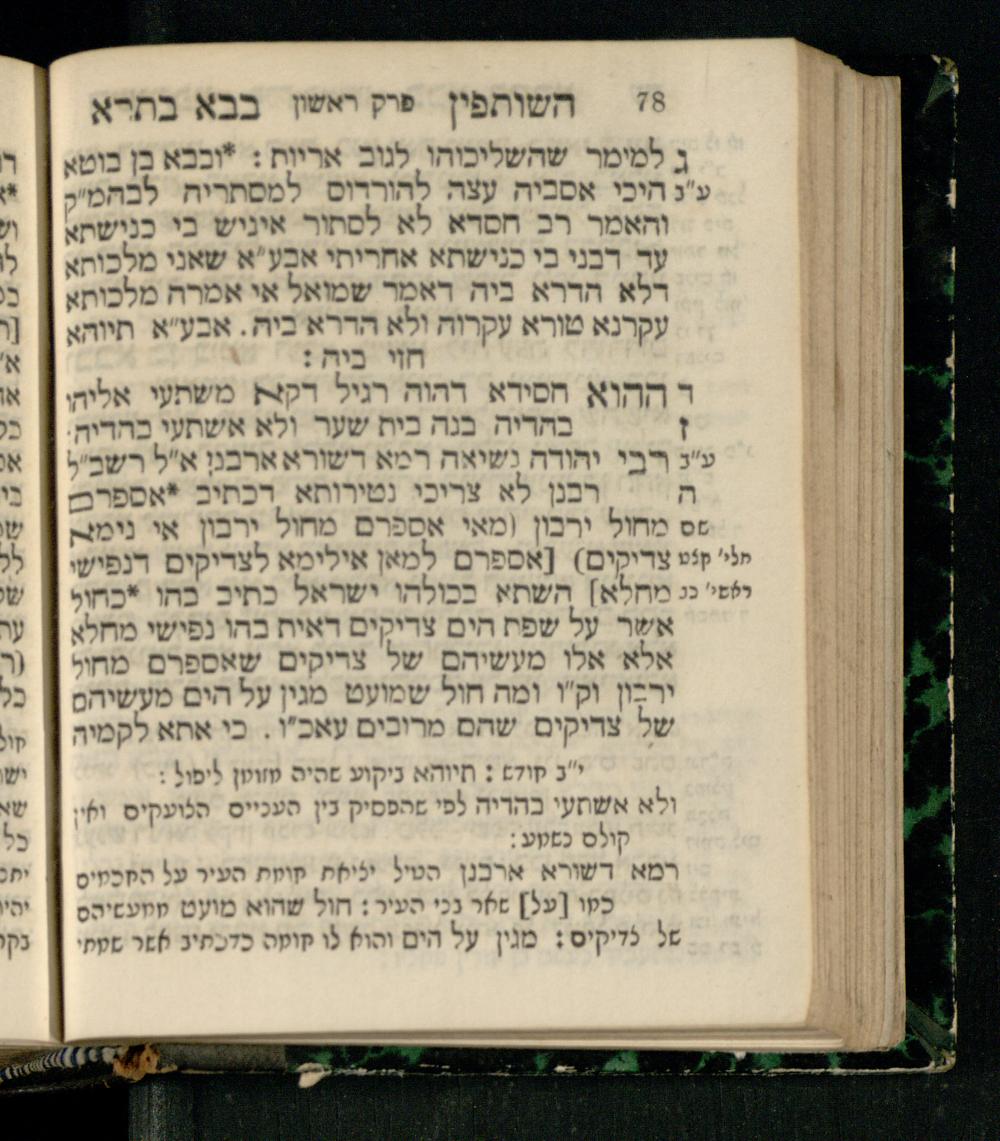 78 השותפין פרק ראשון בבא בתרא
ג למימר שהשליכוהו לגוב אריות : *ובבא בן בוטא
ע"ב היכי אסביה עצה להורדוס למסתריה לבהמ"ק
והאמר רב חסדא לא לסתור איניש בי כנישתא
עד דבני בי כנישתא אחריתי אבע"א שאני מלכותא
דלא הדרא ביה דאמר שמואל אי אמרה מלכותא
עקרנא טורא עקרוה ולא הדרא ביה. אבע"א תיוהא
חזי ביה :
ד ההוא חסידא דהוה רגיל דקא משתעי אליהו
ז בהדיה בנה בית שער ולא אשתעי בהדיה.
ע"ב רבי יהודה נשיאה רמא דשורא ארבנן א"ל רשב"ל
ה רבנן לא צריכי נטירותא דכתיב *אספרם
שם מחול ירבון (מאי אספרם מחול ירבון אי נימא
תלי' קלט צדיקים) [אספרם למאן אילימא לצדיקים דנפישי
ראשי' כב מחלא] השתא בכולהו ישראל כתיב בהו *כחול
אשר על שפת הים צדיקים דאית בהו נפישי מחלא
אלא אלו מעשיהם של צדיקים שאספרם מחול
ירבון וק"ו ומה חול שמועט מגין על הים מעשיהם
של צדיקים שהם מרובים עאכ"ו . כי אתא לקמיה
י"ב קודש : תיוהא ביקוע שהיה מזומן ליפול :
ולא אשתעי בהדיה לפי שהפסיק בין העניים הצועקים ואין
קולם נשמע :
רמא דשורא ארבנן הטיל יציאת חומת העיר על החכמים
כמו [על] שאר בני העיר : חול שהוא מועט ממעשיהם
של צדיקים : מגין על הים והוא לו חומה כדכתיב אשר שמתי